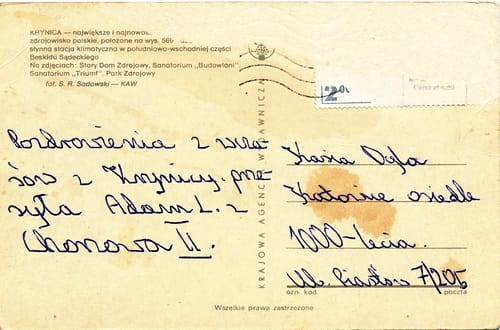 KRYNICA — największe i najnowo
zdrojowisko polskie, położone na wys. 560
słynna stacja klimatyczna w południowo-wschodniej części
Beskidu Sądeckiego
Na zdjęciach: Stary Dom Zdrojowy, Sanatorium „Budowlani"
Sanatorium „Triumf", Park Zdrojowy
fot. S. R. Sadowski — KAW
Pozdrowienia z wcza
sów z Krynicy. prze
syła Adam L. z
Chorzowa II.
KRAJOWA AGENCJA WYDAWNICZA
Cena zł
Kasia Dyla
osiedle
1000-lecia.
Ul. Piastów 7/205
ozn. kod.
poczta
Wszelkie prawa zastrzeżone